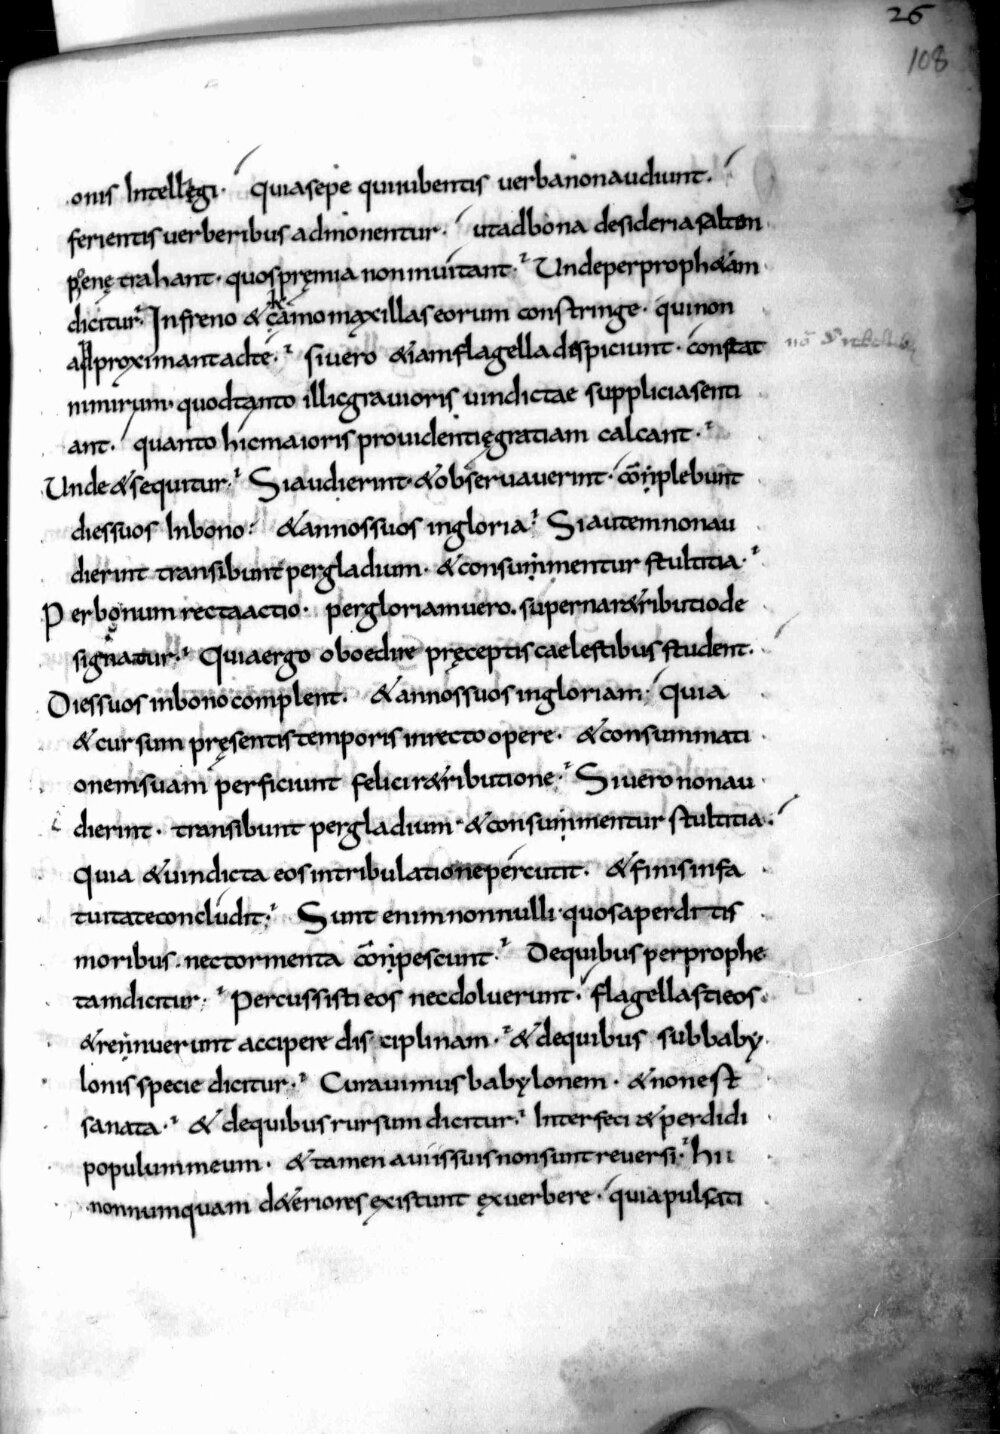 26
108
onis Intellegi. quia sepe qui iubentis uerba non audiunt.
ferientis uerberibus admonentur. ut ad bona desideria saltem
pęnę trahant. quos pręmia non inuitant. Unde per proph&am
dicitur. In freno & camo maxillas eorum constringe. qui non
approximant ad te. si uero &iam flagella dispiciunt. constat
nimirum. quod tanto illic grauioris uindictae supplicia senti
ant. quanto hic maioris prouidentię gratiam calcant.
Unde & sequitur. Si audierint. & obseruauerint. cōnplebunt
dies suos In bono. & annos suos in gloria. Si autem non au
dierint transibunt per gladium. & consummentur stultitia.
Per bonum recta actio. per gloriam uero. superna r&ributio de
signatur. Quia ergo oboedire pręceptis caelestibus student.
Dies suos in bono complent. & annos suos in gloriam. quia
& cursum pręsentis temporis in recto opere. & consummati
onem suam perficiunt felici r&ributione. Si uero non au
dierint. transibunt per gladium. & consummentur stultitia.
Quia & uindicta eos in tribulatione percutit. & finis in fa
tuitate concludit. Sunt enim nonnulli quos a perditis
moribus. nec tormenta cōnpescunt. De quibus per prophe
tam dicitur. Percussisti eos nec doluerunt. flagellasti eos.
& rennuerunt accipere disciplinam. & de quibus sub baby
lonis specie dicitur. Curauimus babylonem. & non est
sanata. & de quibus rursum dicitur. Interfeci & perdidi
populum meum. & tamen a uiis suis non sunt reuersi. hii
nonnumquam d&eriores existunt ex uerbere. quia pulsati